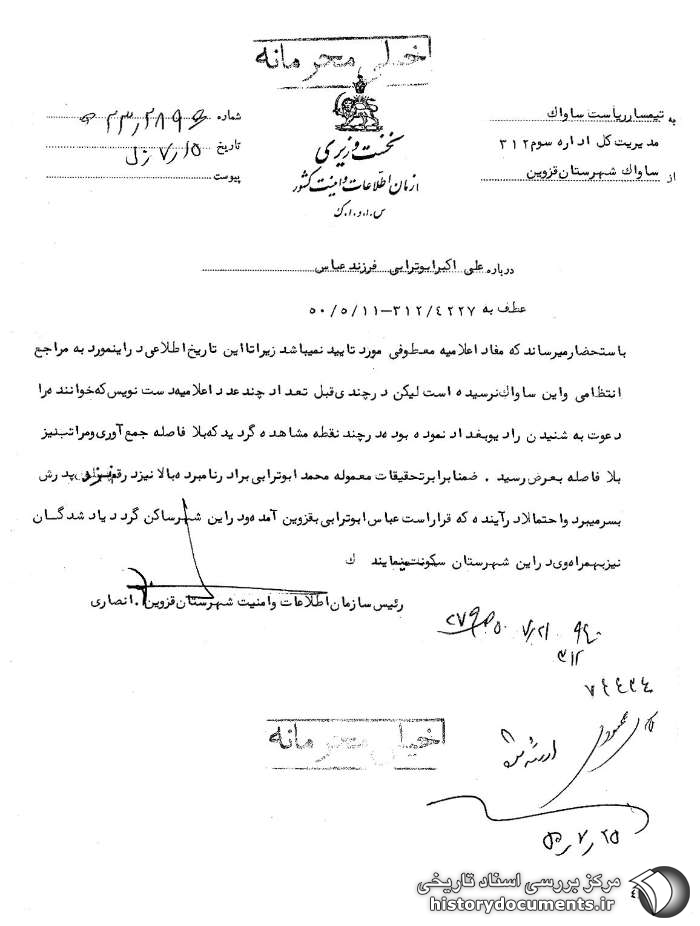 خیلی محرمانه
نخست وزیری
سازمان اطلاعات و امنیت کشور
س.ا.و.ا.ک
به تیمسار ریاست ساواک
مدیریت کل اداره سوم ۳۱۲
از ساواک شهرستان قزوین
شماره
تاریخ
پیوست
درباره علی اکبر ابوترابی فرزند عباس
عطف به ۳۱۲/٤۲۲۷-۵۰/۵/۱۱
باستحضار میرساند که مفاد اعلامیه معطوفی مورد تایید نمیباشد زیرا تا این تاریخ اطلاعی در اینمورد به مراجع
انتظامی و این ساواک نرسیده است لیکن در چندی قبل تعداد چند عدد اعلامیه دست نویس که خواننده را
دعوت به شنیدن رادیو بغداد نموده بود در چند نقطه مشاهده گردید که بلا فاصله جمع آوری و مراتب نیز
بلا فاصله بعرض رسید . ضمنا برابر تحقیقات معموله محمد ابوترابی برادر نامبرده بالا نیز در قم نزد پدرش
بسر میبرد و احتمالا در آینده که قرار است عباس ابوترابی بقزوین آمده و در این شهر ساکن گردد یاد شدگان
نیز بهمراه وی در این شهرستان سکونت نمایند ک
رئیس سازمان اطلاعات و امنیت شهرستان قزوین . انصاری
۳۱۲
۷٤٤۳٤
خیلی محرمانه
۵۰/۷/۲۵
مرکز بررسی اسناد تاریخی
historydocuments.ir